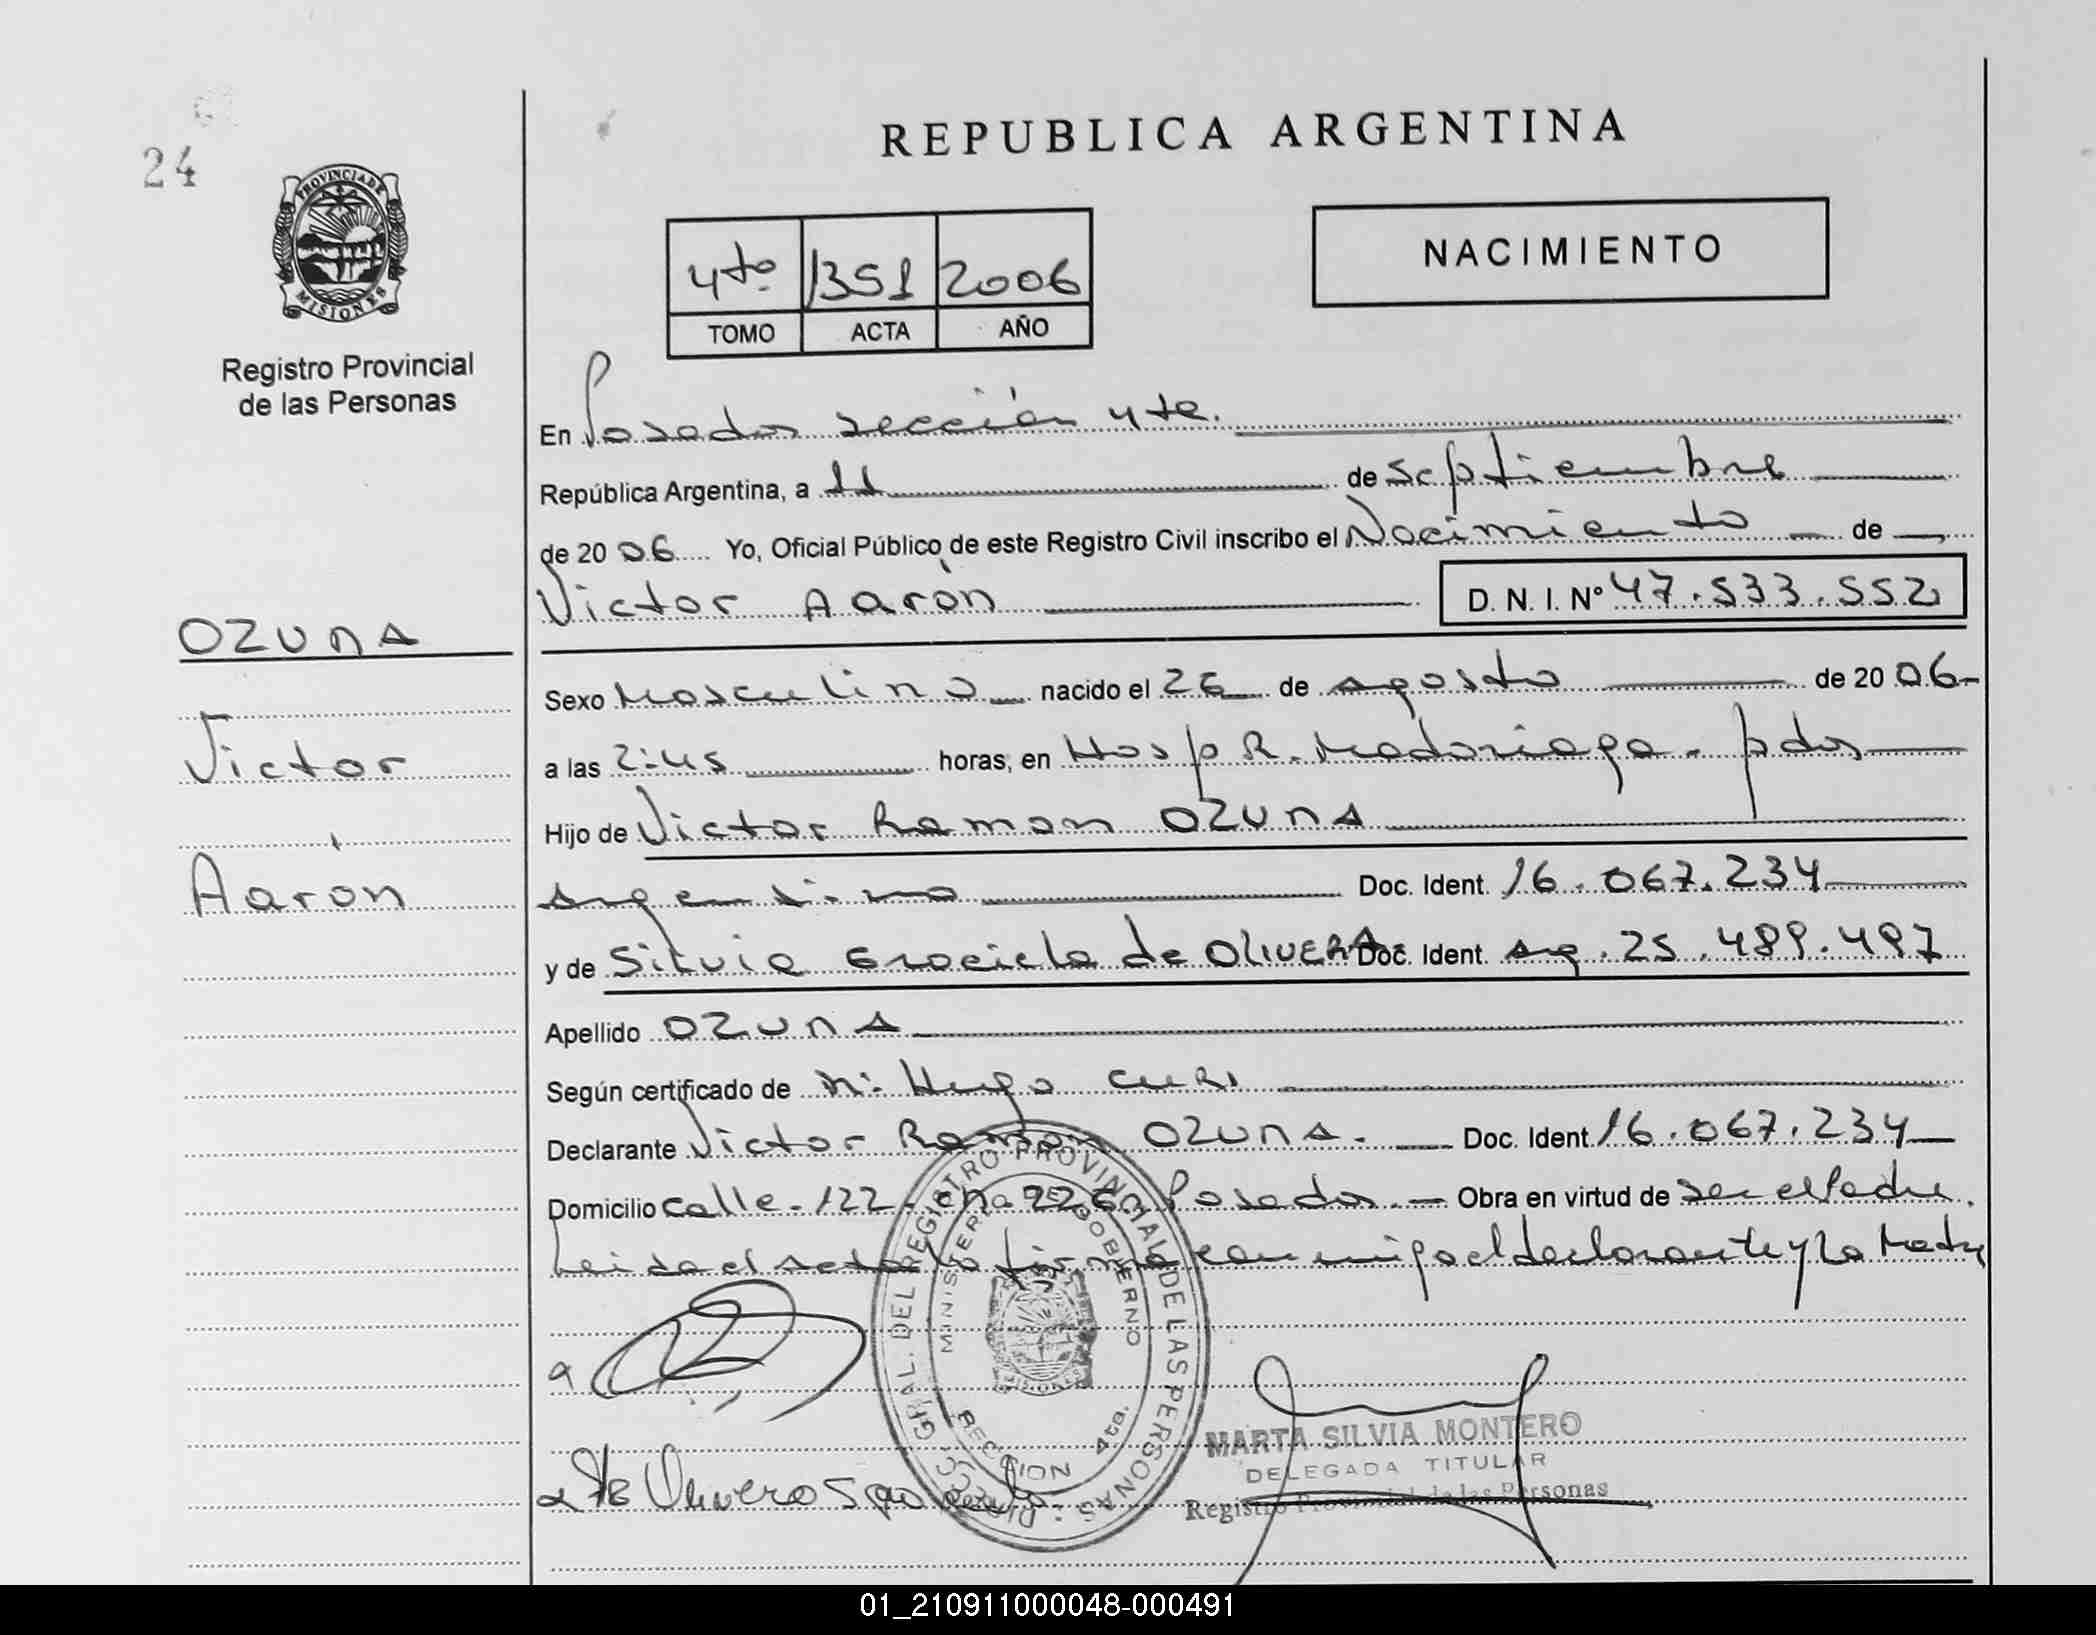 REPUBLICA ARGENTINA
24
PROVINCIA DE MISIONES
Registro Provincial
de las Personas
4to 1351 2006
TOMO ACTA AÑO
NACIMIENTO
En Posadas sección 4ta.
República Argentina, a 11 de Septiembre
de 2006 Yo, Oficial Público de este Registro Civil inscribo el Nacimiento de
Victor Aarón D. N. I. Nº 47.533.552
OZUNA
Victor
Aarón
Sexo Masculino nacido el 26 de agosto de 2006-
a las 2:45 horas, en Hosp R. Madariaga - pdas
Hijo de Victor Ramon OZUNA
argentino Doc. Ident. 16.067.234
y de Silvia Graciela de OLIVERA Doc. Ident. arg. 25.489.497
Apellido OZUNA
Según certificado de Hugo
Declarante Victor Ramon OZUNA. Doc. Ident. 16.067.234
Domicilio calle - 122 - cha 226 Posadas. - Obra en virtud de ser el Padre.
Leida el acta la firma conmigo el declarante y la Madre
DIRECC. GRAL. DEL REGISTRO PROVINCIAL DE LAS PERSONAS
MINISTERIO DE GOBIERNO
MISIONES
SECCION 4ta.
MARTA SILVIA MONTERO
DELEGADA TITULAR
Registro Provincial de las Personas
01_210911000048-000491